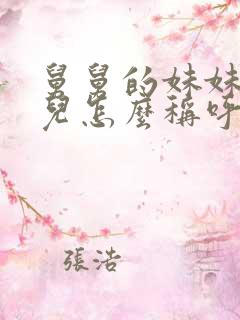 舅舅的妹妹
兒怎麼稱呼
張浩